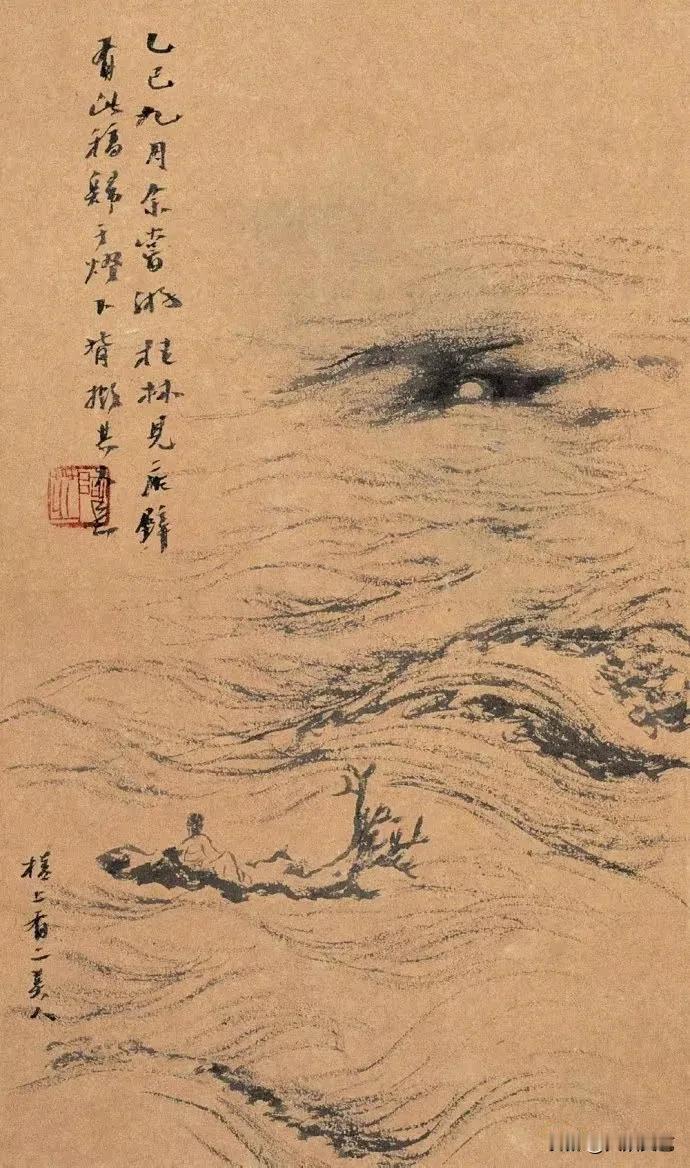 乙巳九月余嘗游桂林見壁
有此稿歸于燈下背擬其大意
槎上有二美人